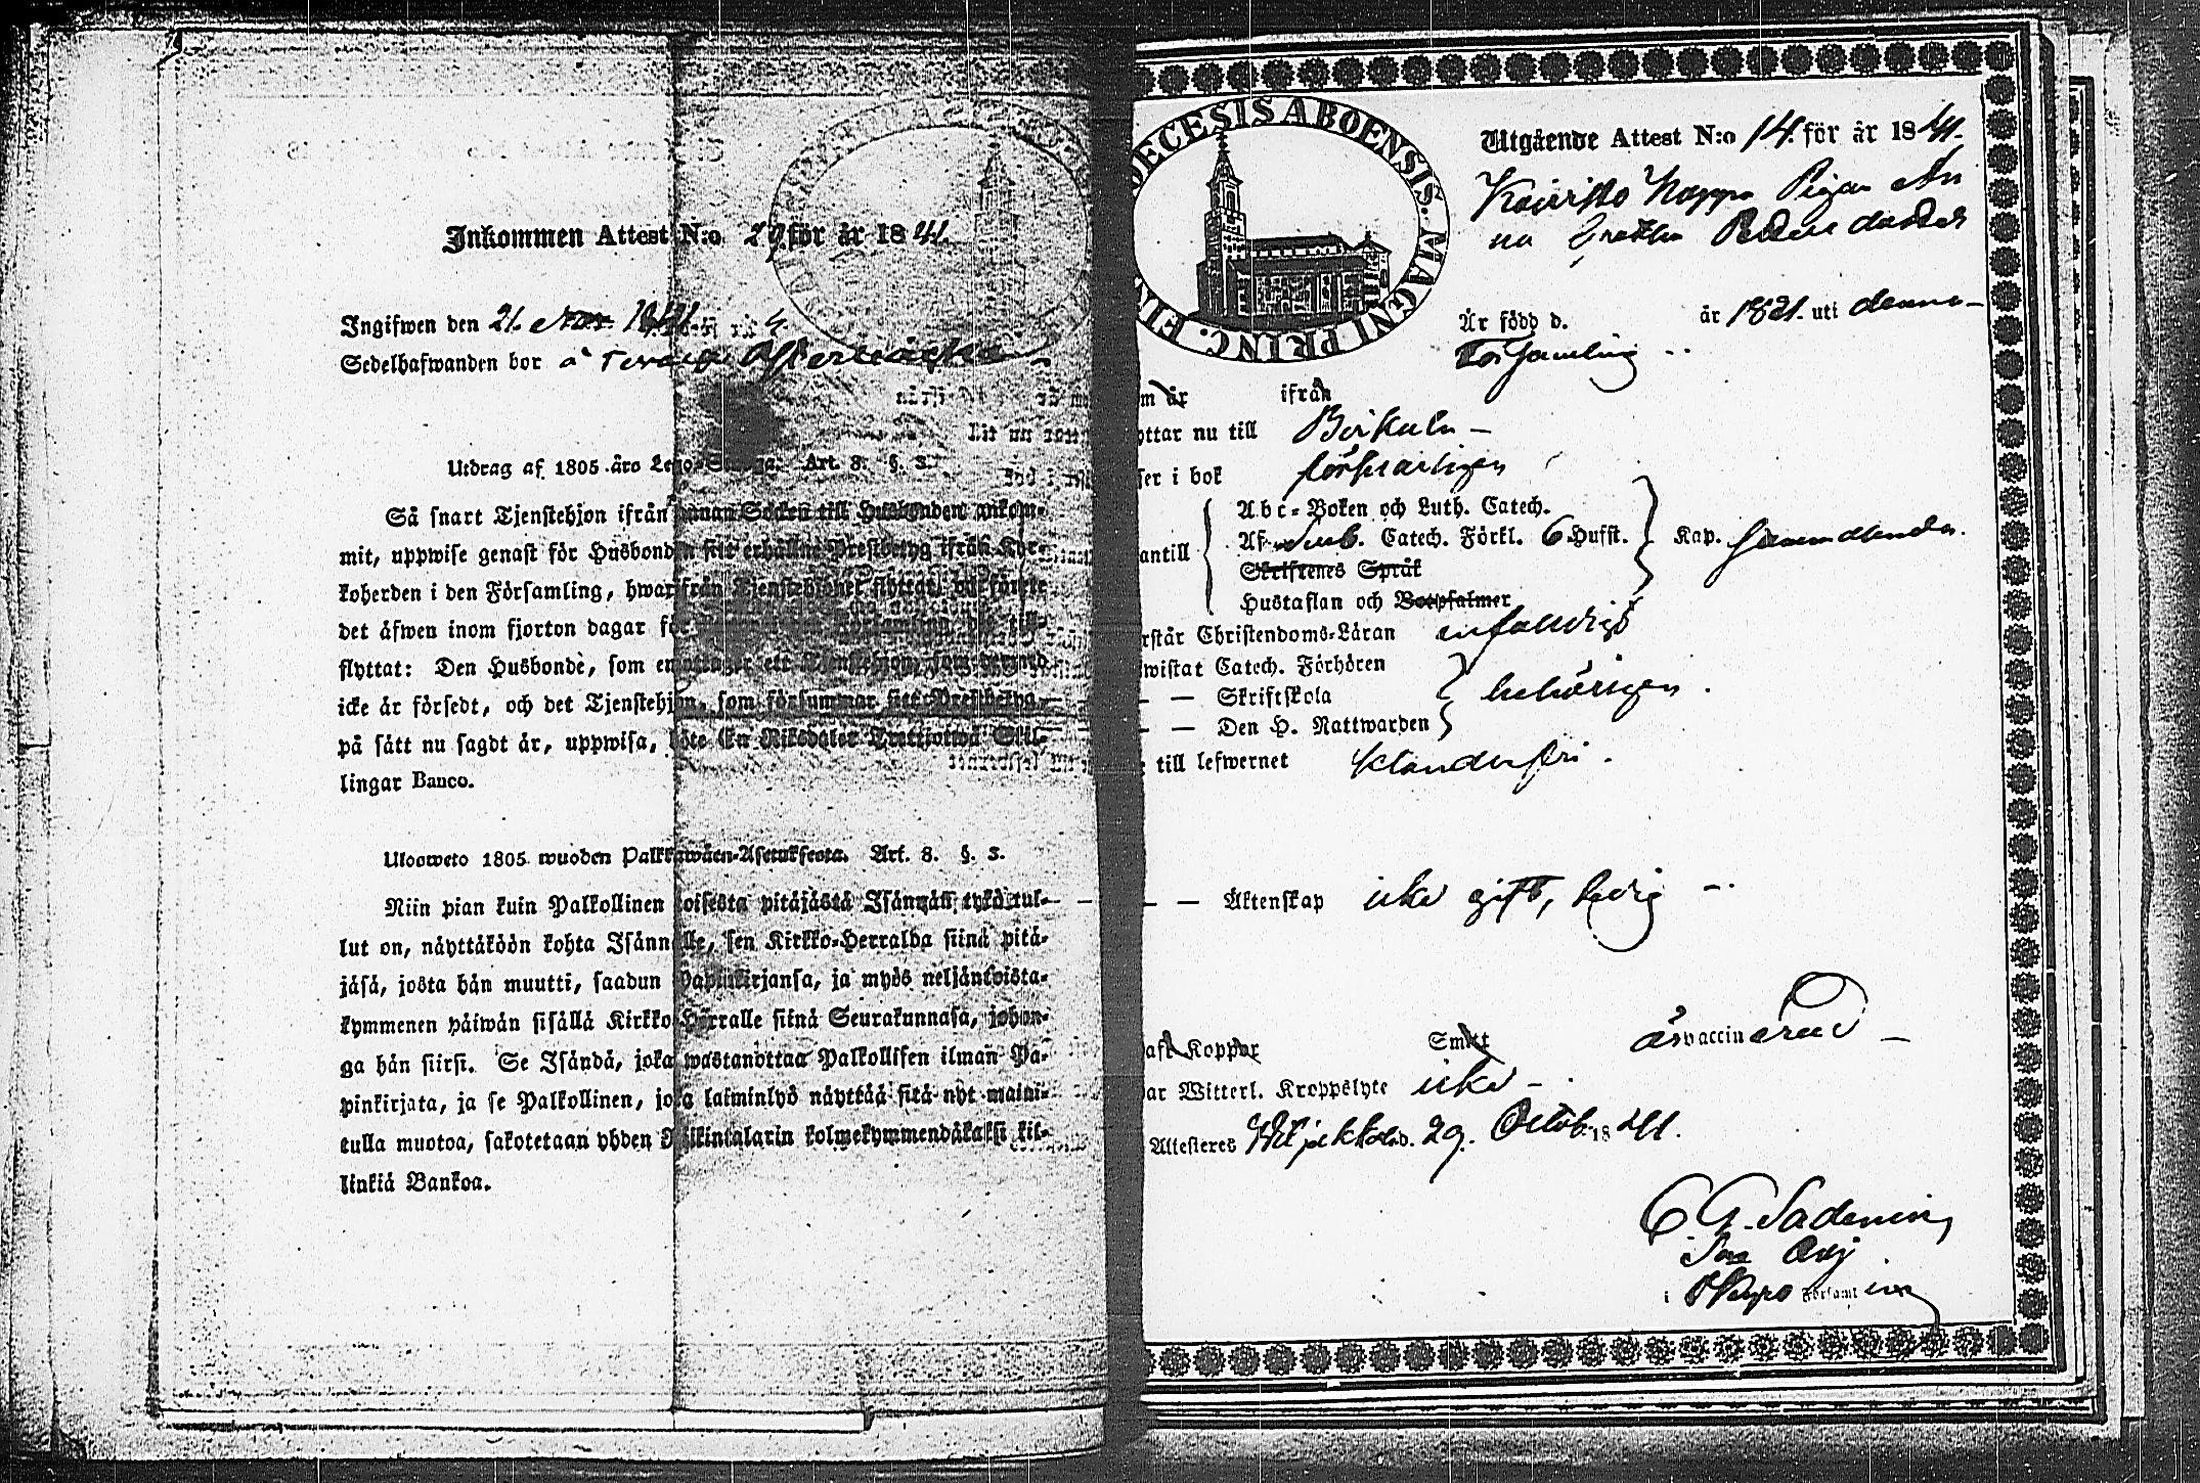 Inkommen Attest N:o 29 för år 1841.
Ingifwen den 21. Nov. 1841
Sedelhafwanden bor å
Utdrag af 1805 års Lego-Stadga. Art. 8. §. 3.
Så snart Tjenstehjon ifrån annan Socken till Husbonden ankom-
mit, uppwise genast för Husbonden sitt erhållne Prestbetyg ifrån Kyr-
koherden i den Församling, hwarifrån Tjenstehjonet flyttat,
det äfwen inom fjorton dagar för
flyttat: Den Husbonde, som emottager ett Tjenstehjon, som dermed
icke är försedt, och det Tjenstehjon, som försummar sitt Prestbetyg,
på sätt nu sagdt är, uppwisa, böte En Riksdaler Trettiotwå Skil-
lingar Banco.
Ulosweto 1805 wuoden Palkkawäen-Asetuksesta. Art. 8. §. 3.
Niin pian kuin Palkollinen toisesta pitäjästä Isännän tykö tul-
lut on, näyttäköön kohta Isännälle, sen Kirkko-Herralda siinä pitä-
jäsä, josta hän muutti, saadun Papinkirjansa, ja myös neljäntoista-
kymmenen päiwän sisällä Kirkko-Herralle siinä Seurakunnasa, johon-
ga hän siirsi. Se Isändä, joka wastanottaa Palkollisen ilman Pa-
pinkirjata, ja se Palkollinen, joka laiminlyö näyttää sitä nyt maini-
tulla muotoa, sakotetaan yhden Riikintalarin kolmekymmendäkaksi kil-
linkiä Bankoa.
DECESIS ABOENSIS. MAGNI PRINC. FIN
Utgående Attest N:o 14. för år 1841.
Pigan An
na Greta Persdotter
Är född d. år 1821. uti denna
Församling
m är ifrån
ottar nu till Birkala
ser i bok försvarligen
Abc-Boken och Luth. Catech.
antill Af Catech. Förkl. 6 Hufst. Kap.
Skriftenes Språk
Hustaflan och Botpsalmer
rstår Christendoms-Läran enfaldigt
wistat Catech. Förhören
— — Skriftskola behörigen.
— — Den H. Nattwarden
till lefwernet klanderfri.
— — Äktenskap icke gift, ledig
aft Koppor Smitt är vaccinerad
ar Witterl. Kroppslyte icke
Attesteres d. 29. Octob. 1841.
C G.
i Kyro Församling